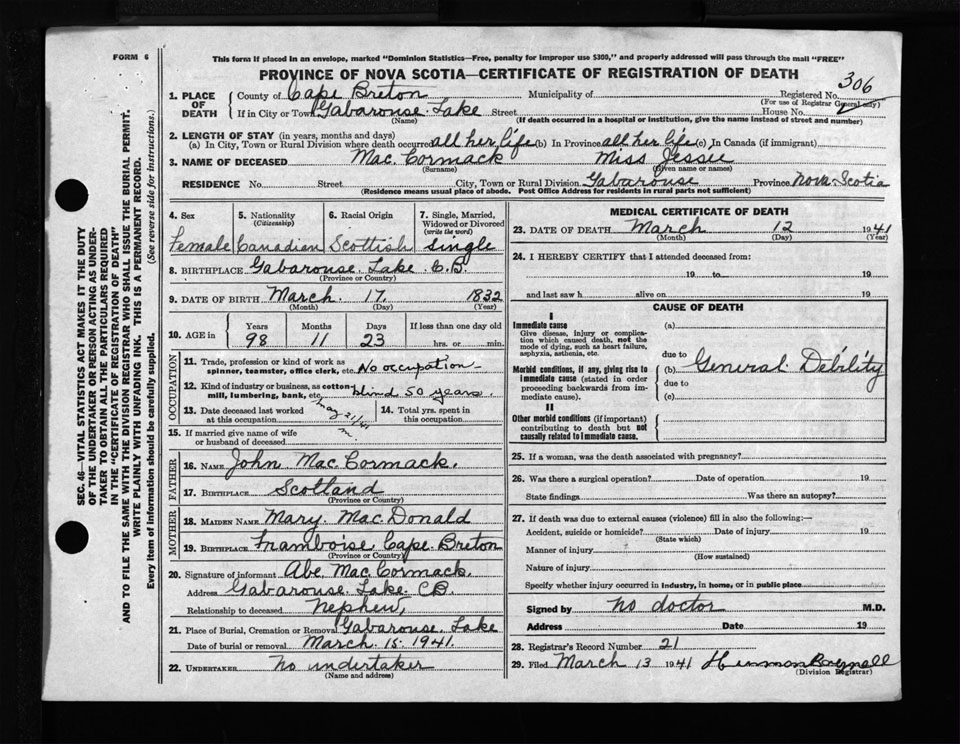 FORM 6
This form if placed in an envelope, marked "Dominion Statistics—Free, penalty for improper use $300," and properly addressed will pass through the mail "FREE"
PROVINCE OF NOVA SCOTIA—CERTIFICATE OF REGISTRATION OF DEATH
306
SEC. 46—VITAL STATISTICS ACT MAKES IT THE DUTY
OF THE UNDERTAKER OR PERSON ACTING AS UNDER-
TAKER TO OBTAIN ALL THE PARTICULARS REQUIRED
IN THE "CERTIFICATE OF REGISTRATION OF DEATH"
AND TO FILE THE SAME WITH THE DIVISION REGISTRAR WHO SHALL ISSUE THE BURIAL PERMIT.
WRITE PLAINLY WITH UNFADING INK. THIS IS A PERMANENT RECORD.
Every item of information should be carefully supplied. (See reverse side for instructions.)
1. PLACE OF DEATH
County of Cape Breton Municipality of Registered No.
(For use of Registrar General only)
If in City or Town Gabarouse Lake Street House No. 2
(Name) (If death occurred in a hospital or institution, give the name instead of street and number)
2. LENGTH OF STAY (in years, months and days)
(a) In City, Town or Rural Division where death occurred all her life (b) In Province all her life (c) In Canada (if immigrant)
3. NAME OF DECEASED Mac Cormack Miss Jessie
(Surname) (Given name or names)
RESIDENCE No. Street City, Town or Rural Division Gabarouse Province Nova Scotia
(Residence means usual place of abode. Post Office Address for residents in rural parts not sufficient)
4. Sex
Female
5. Nationality
(Citizenship)
Canadian
6. Racial Origin
Scottish
7. Single, Married,
Widowed or Divorced
(write the word)
single
8. BIRTHPLACE Gabarouse Lake C.B.
(Province or Country)
9. DATE OF BIRTH March 17 1832
(Month) (Day) (Year)
10. AGE in
Years Months Days If less than one day old
98 11 23 hrs. or min.
OCCUPATION
11. Trade, profession or kind of work as
spinner, teamster, office clerk, etc. No occupation
12. Kind of industry or business, as cotton-
mill, lumbering, bank, etc. blind 50 years.
13. Date deceased last worked
at this occupation
May 21/41
m
14. Total yrs. spent in
this occupation
15. If married give name of wife
or husband of deceased
FATHER
16. NAME John Mac Cormack.
17. BIRTHPLACE Scotland
(Province or Country)
MOTHER
18. MAIDEN NAME Mary MacDonald
19. BIRTHPLACE Framboise, Cape Breton
(Province or Country)
20. Signature of informant Abe MacCormack.
Address Gabarouse Lake CB.
Relationship to deceased Nephew,
21. Place of Burial, Cremation or Removal Gabarouse Lake
Date of burial or removal March 15 1941.
22. UNDERTAKER No undertaker
(Name and address)
MEDICAL CERTIFICATE OF DEATH
23. DATE OF DEATH March 12 1941
(Month) (Day) (Year)
24. I HEREBY CERTIFY that I attended deceased from:
19 to 19
and last saw h alive on 19
CAUSE OF DEATH
I
Immediate cause
Give disease, injury or complica-
tion which caused death, not the
mode of dying, such as heart failure,
asphyxia, asthenia, etc.
Morbid conditions, if any, giving rise to
immediate cause (stated in order
proceeding backwards from im-
mediate cause).
(a)
due to
(b) General Debility
due to
(c)
II
Other morbid conditions (if important)
contributing to death but not
causally related to immediate cause.
25. If a woman, was the death associated with pregnancy?
26. Was there a surgical operation? Date of operation 19
State findings Was there an autopsy?
27. If death was due to external causes (violence) fill in also the following:—
Accident, suicide or homicide? Date of injury 19
(State which)
Manner of injury
(How sustained)
Nature of injury
Specify whether injury occurred in industry, in home, or in public place
Signed by No doctor M.D.
Address Date 19
28. Registrar's Record Number 21
29. Filed March 13 1941
(Division Registrar)